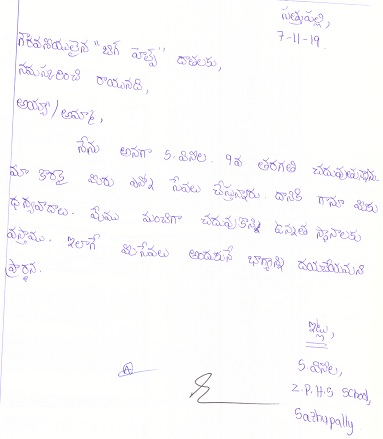 సత్తుపల్లి,
7-11-19.
గౌరవనీయులైన "బిగ్ హెల్ప్" దాతలకు,
నమస్కరించి రాయునది,
అయ్యా/అమ్మా,
నేను అనగా S. వినీల. 9వ తరగతి చదువుతున్నాను
మా కొరకై మీరు ఎన్నో సేవలు చేస్తున్నారు. దానికి గానూ మీకు
ధన్యవాదాలు. మేము మంచిగా చదువుకొన్ని ఉన్నత స్థానాలకు
వస్తాము. ఇలాగే మీసేవలు అందుకునే భాగ్యాన్ని దయచేయమని
ప్రార్థన.
ఇట్లు,
S. వినీల,
Z.P.H.S School,
Sathupally